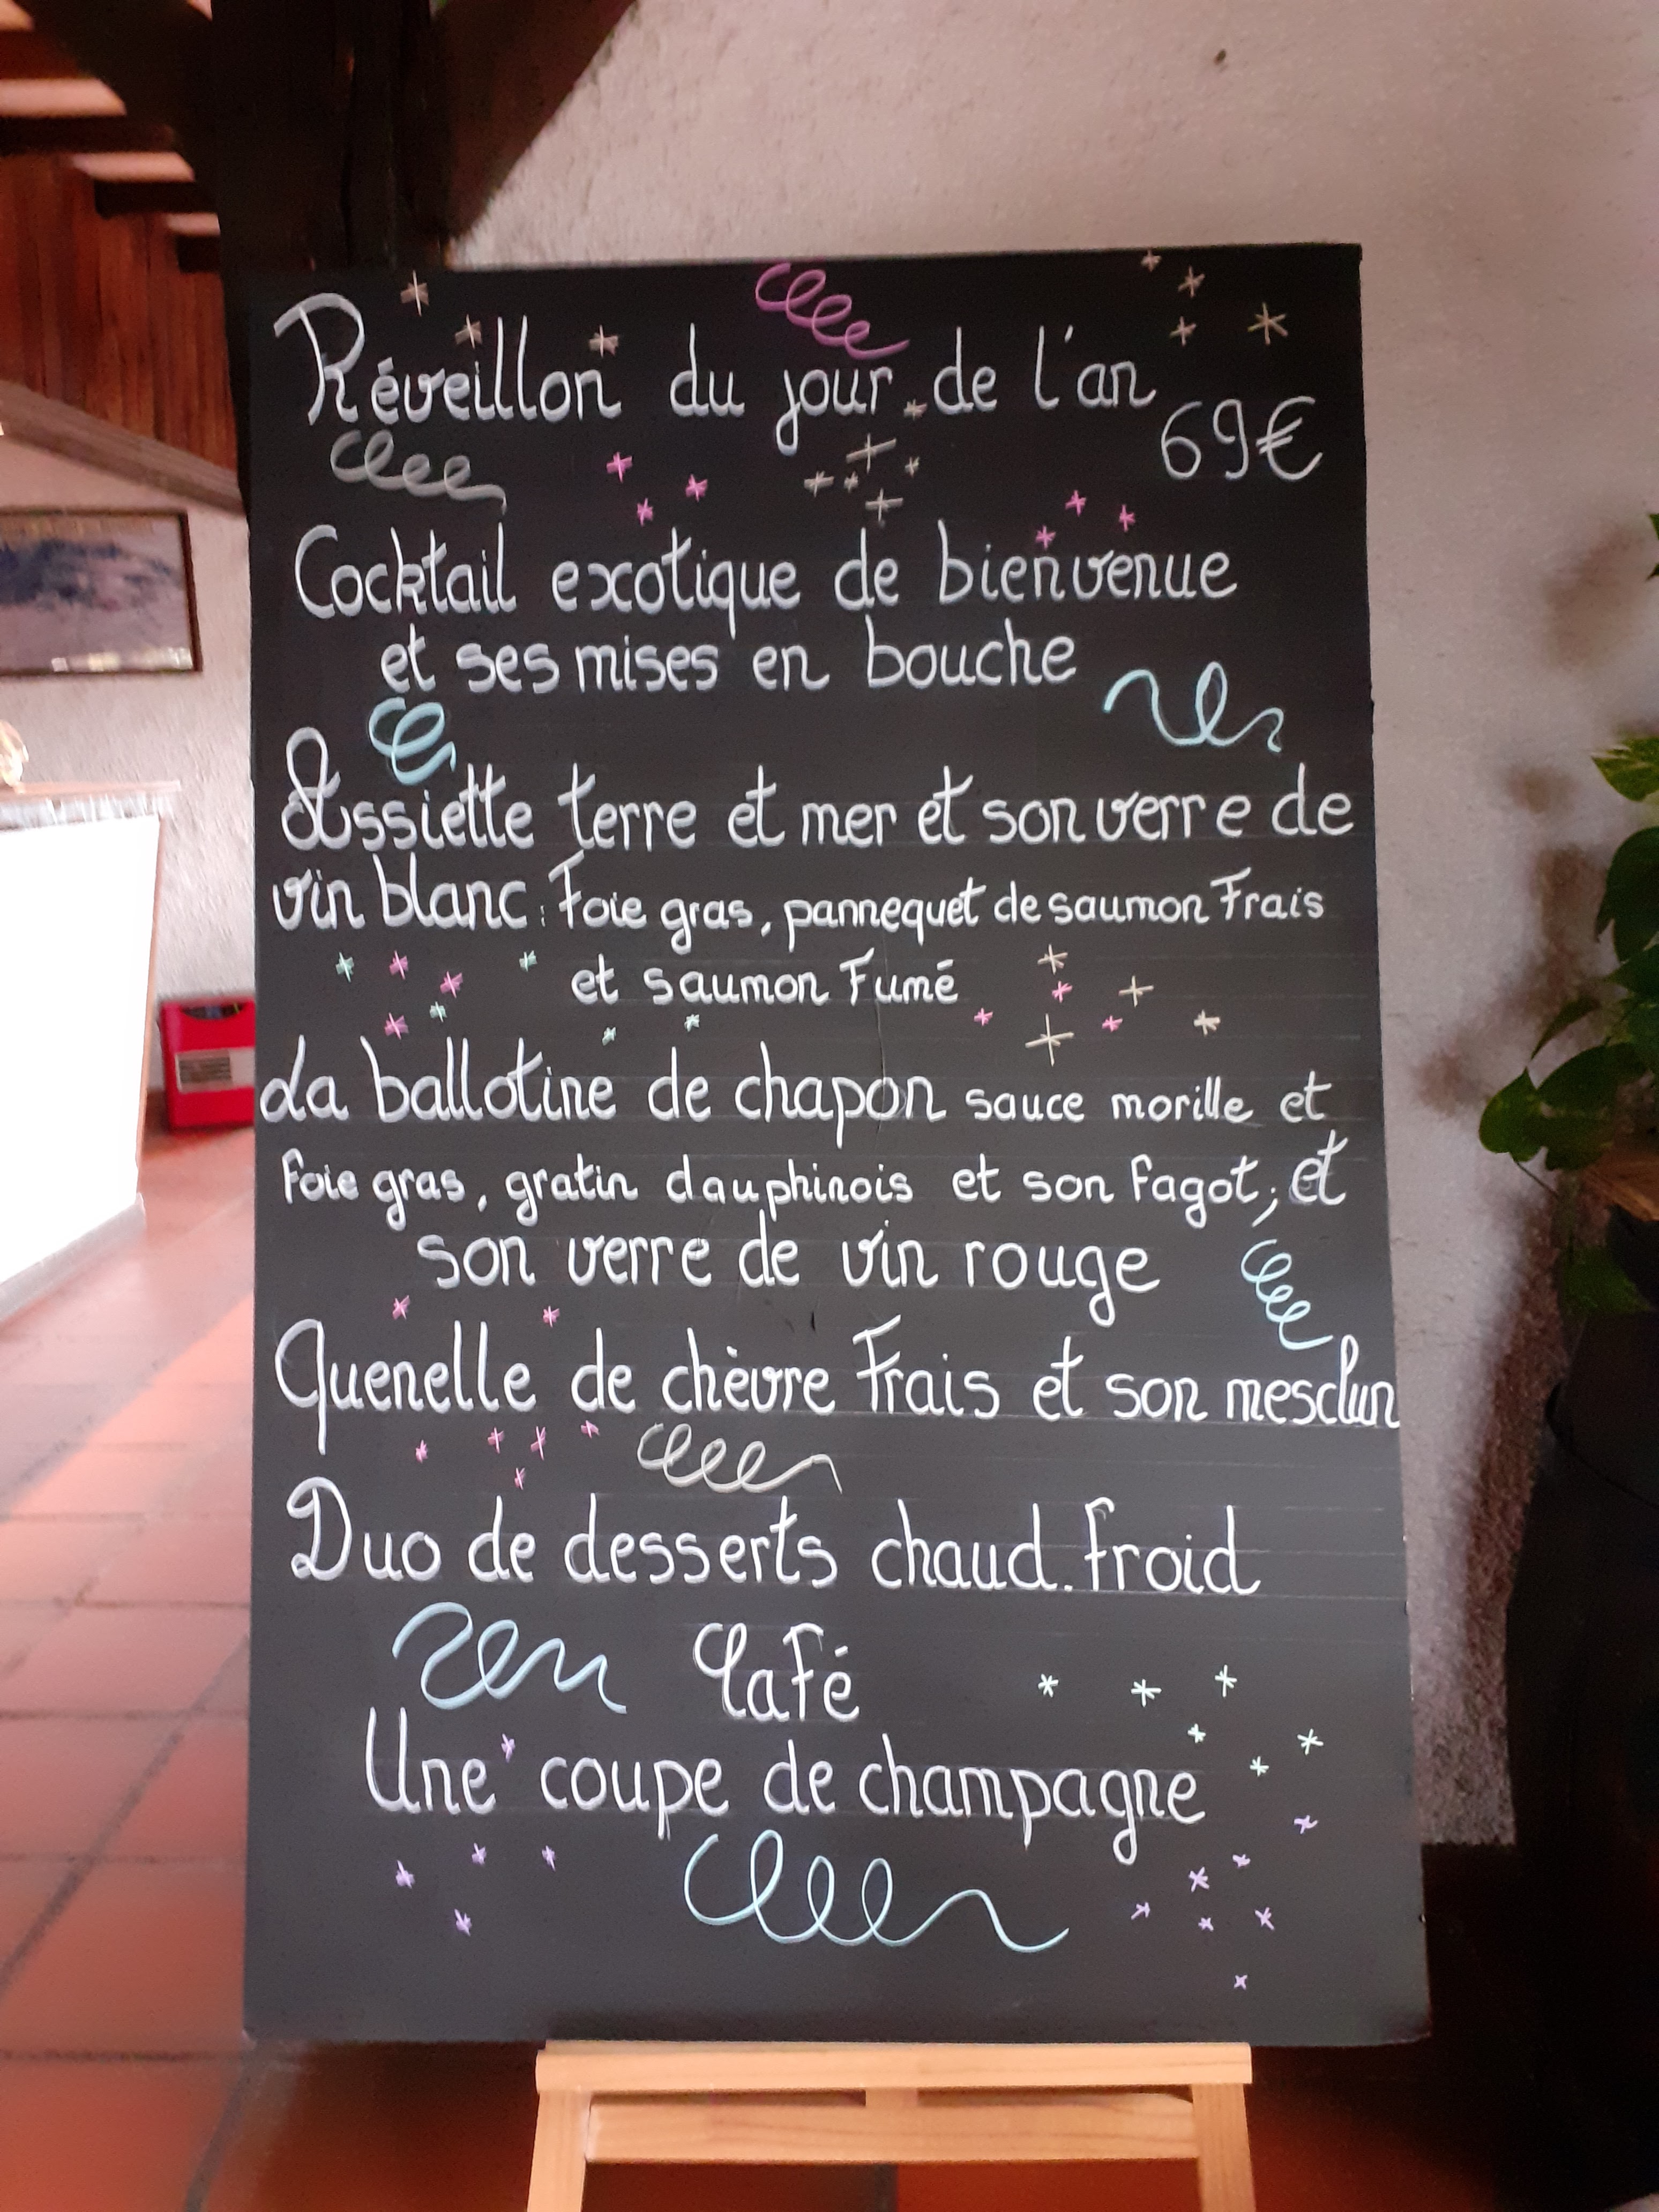 Réveillon du jour de l'an
69€
Cocktail exotique de bienvenue
et ses mises en bouche
Assiette terre et mer et son verre de
vin blanc : Foie gras, pannequet de saumon Frais
et saumon Fumé
La ballotine de chapon sauce morille et
Foie gras, gratin dauphinois et son Fagot, et
son verre de vin rouge
Quenelle de chèvre Frais et son mesclun
Duo de desserts chaud.froid
Café
Une coupe de champagne